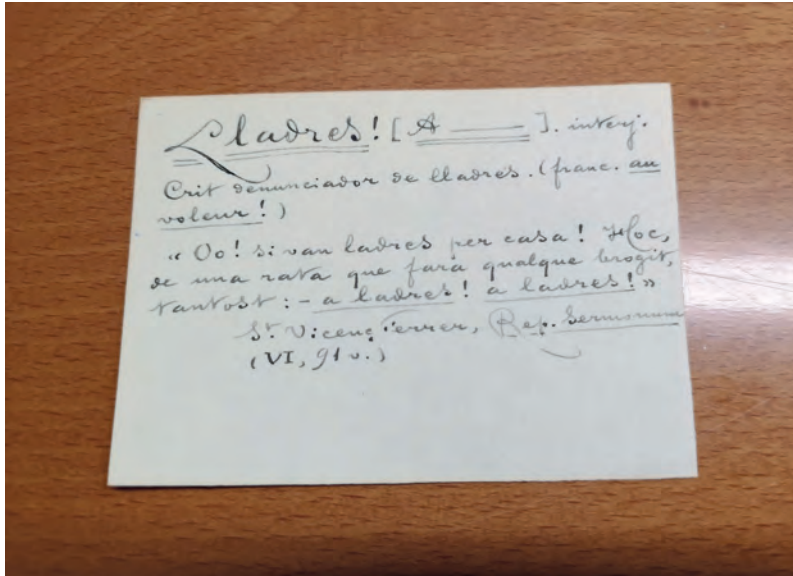 Lladres! [A ——— ]. interj.
Crit denunciador de lladres. (franc. au
voleur!)
"Oo! si van ladres per casa! Hoc,
de una rata que fara qualque brogit,
tantost: - a ladres! a ladres!"
St. Vicenç Ferrer, Rep. Sermonum
(VI, 91 v.)